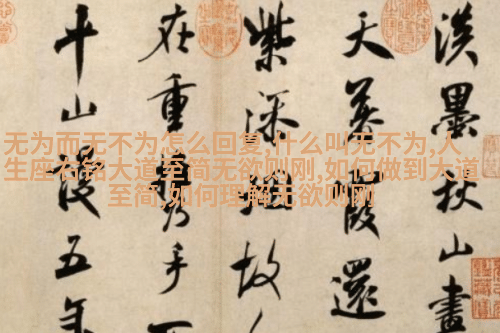 淡墨秋山畫
天暮霞還
紫添煙故
在重攜手
平山謾五年
无为而无不为怎么回复,什么叫无不为,人
生座右铭大道至简无欲则刚,如何做到大道
至简,如何理解无欲则刚